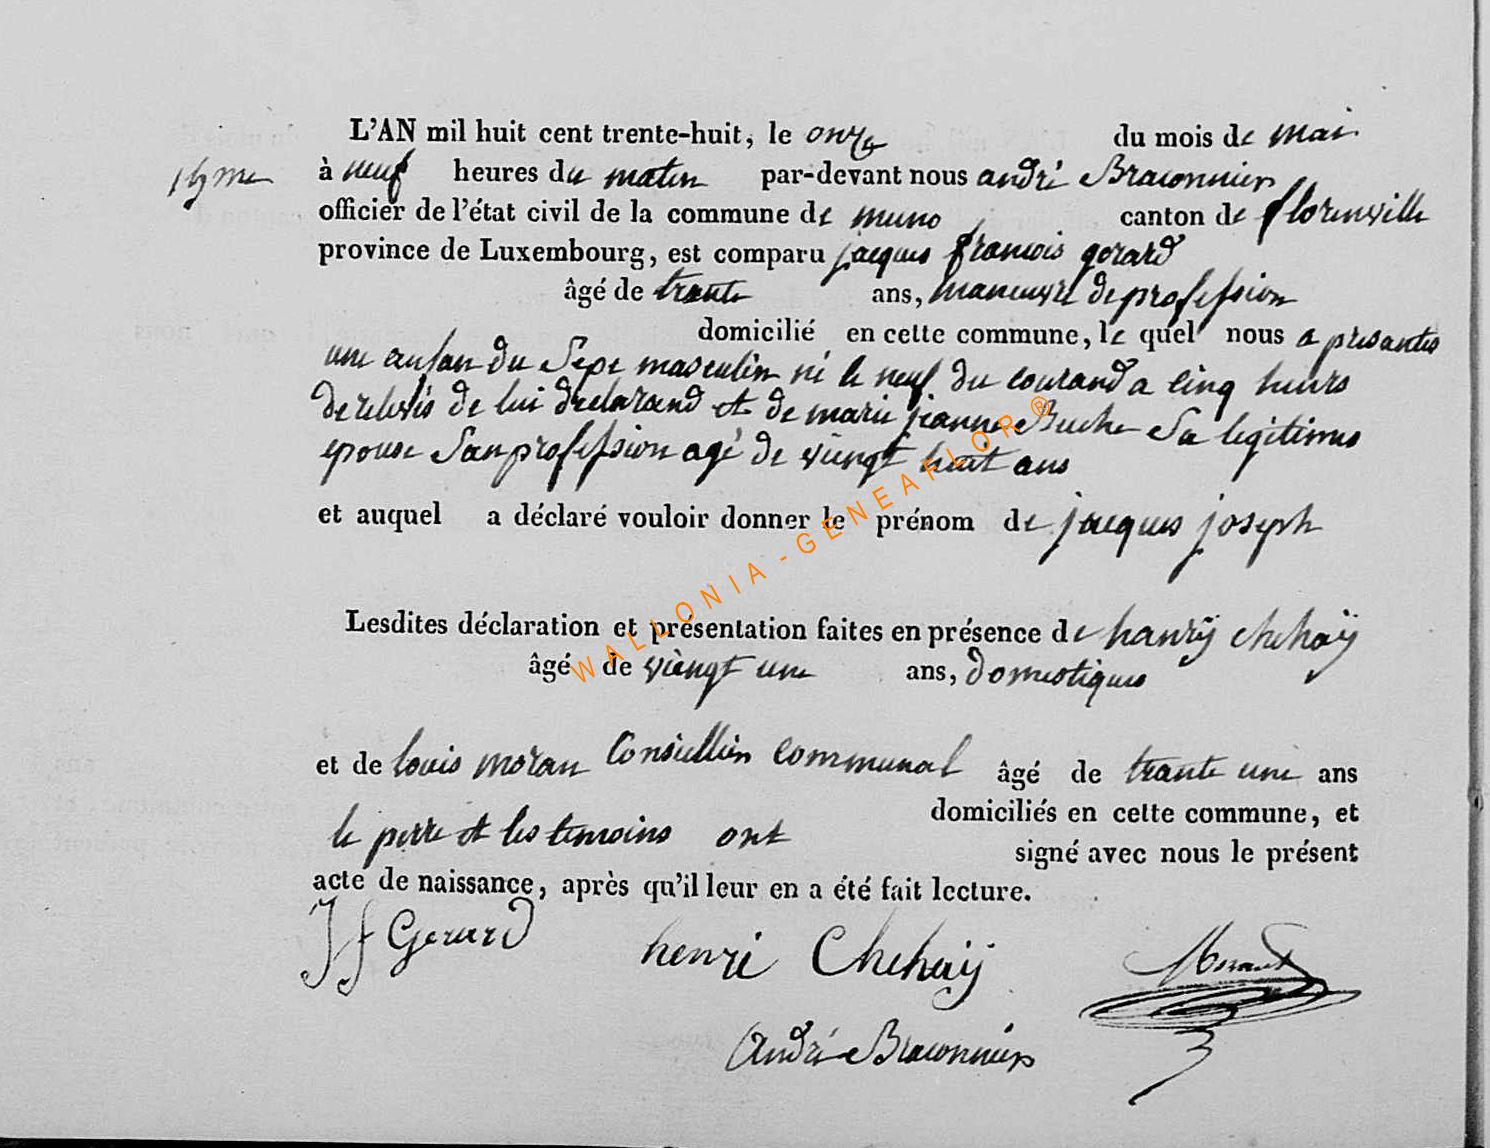 L'AN mil huit cent trente-huit, le onze du mois de mai
à neuf heures du matin par-devant nous andré Braconnier
officier de l'état civil de la commune de muno canton de florenville
province de Luxembourg, est comparu jacques francois gerard
âgé de trante ans, maneuvre de profession
domicilié en cette commune, le quel nous a presantes
une enfan du Sexe masculin né le neuf du courand a cinq heurs
de lui declarand et de marie jeanne Buche Sa legitimes
epouse San profession agé de viengt huit ans
et auquel a déclaré vouloir donner le prénom de jacques joseph
Lesdites déclaration et présentation faites en présence de hanrÿ chehaÿ
âgé de viengt une ans, domestiques
et de louis moran Consiellier Communal âgé de trante une ans
domiciliés en cette commune, et
le perre et les temoins ont
signé avec nous le présent
acte de naissance, après qu'il leur en a été fait lecture.
J f Gerard henri Chehaÿ Morant
André Braconnier
WALLONIA - GENEAFLOR ®